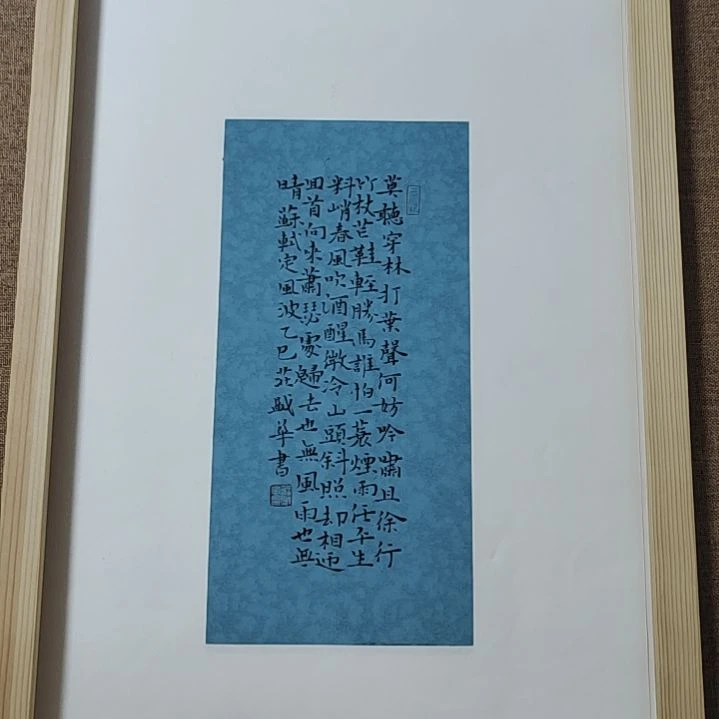 莫聽穿林打葉聲何妨吟嘯且徐行
竹杖芒鞋輕勝馬誰怕一蓑煙雨任平生
料峭春風吹酒醒微冷山頭斜照却相迎
回首向來蕭瑟處歸去也無風雨也無
晴蘇軾定風波乙巳 華書